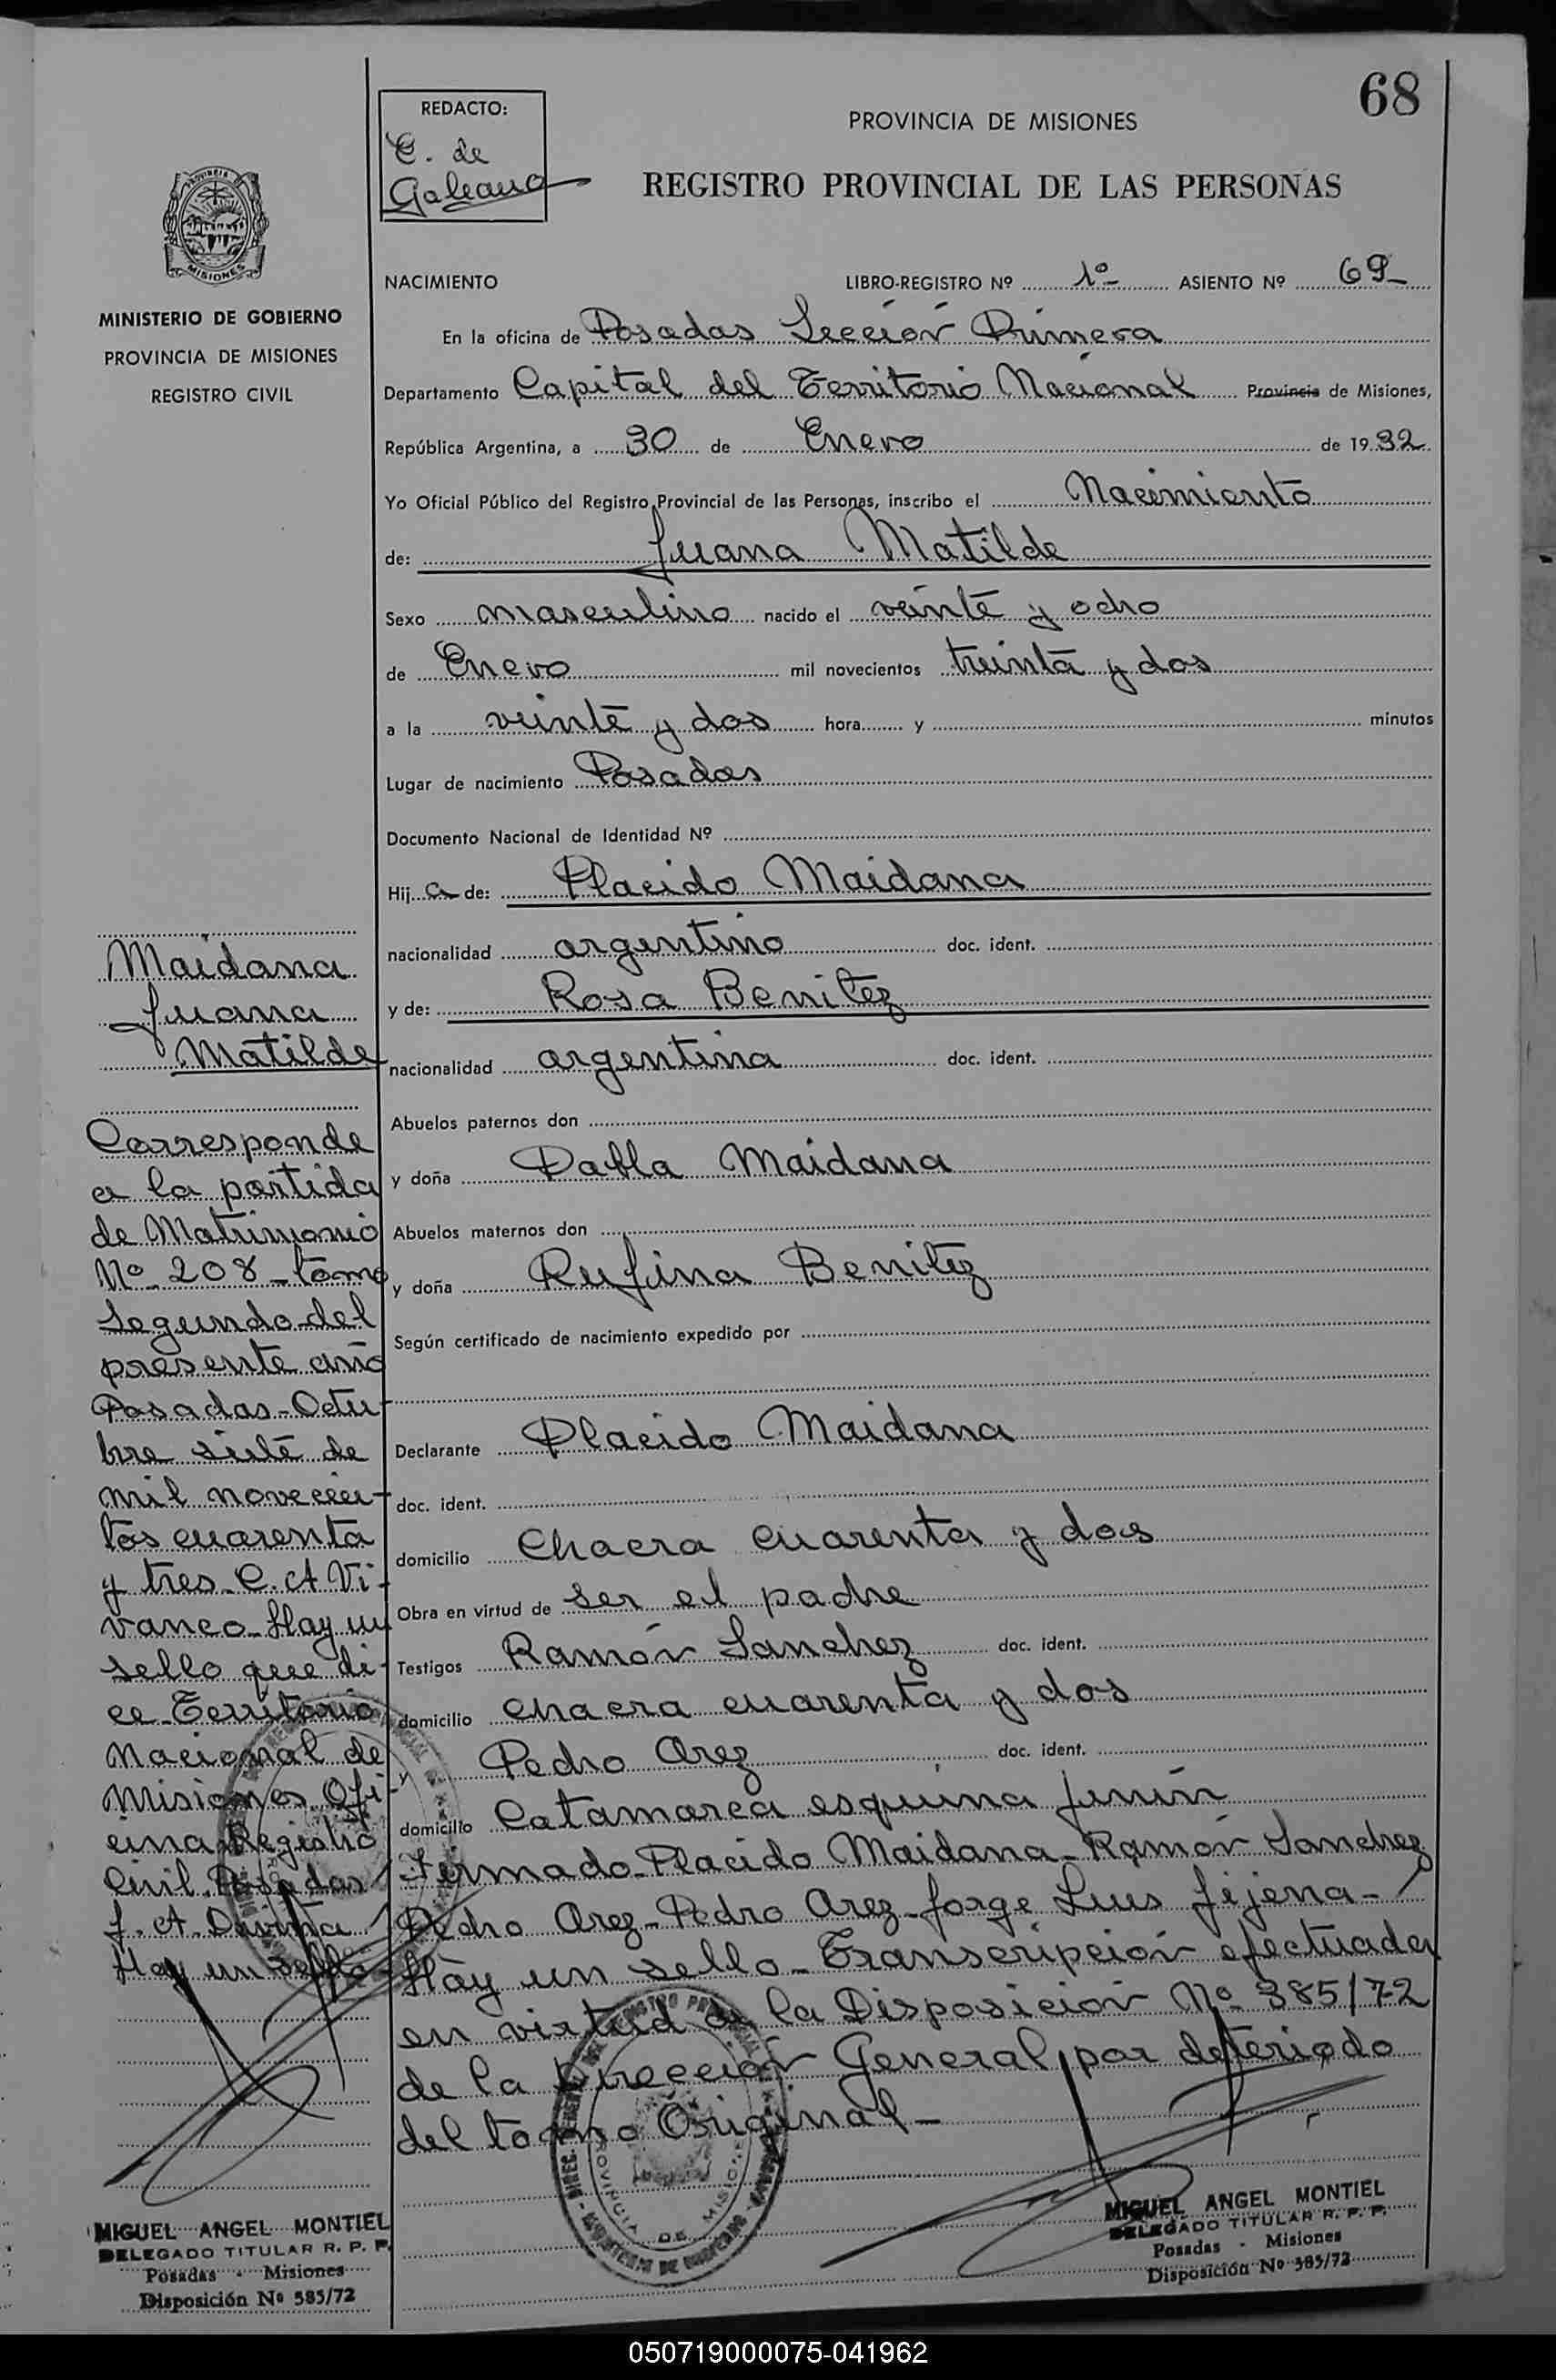 68
REDACTO:
C. de
Galeano
PROVINCIA DE MISIONES
REGISTRO PROVINCIAL DE LAS PERSONAS
MISIONES
MINISTERIO DE GOBIERNO
PROVINCIA DE MISIONES
REGISTRO CIVIL
NACIMIENTO LIBRO-REGISTRO Nº 1º ASIENTO Nº 69
En la oficina de Posadas Sección Primera
Departamento Capital del Territorio Nacional Provincia de Misiones,
República Argentina, a 30 de Enero de 1932
Yo Oficial Público del Registro Provincial de las Personas, inscribo el Nacimiento
de: Juana Matilde
Sexo masculino nacido el veinte y ocho
de Enero mil novecientos treinta y dos
a la veinte y dos hora y minutos
Lugar de nacimiento Posadas
Documento Nacional de Identidad Nº
Hij a de: Placido Maidana
nacionalidad argentino doc. ident.
y de: Rosa Benitez
nacionalidad argentina doc. ident.
Abuelos paternos don
y doña Pabla Maidana
Abuelos maternos don
y doña Rufina Benitez
Según certificado de nacimiento expedido por
Declarante Placido Maidana
doc. ident.
domicilio Chacra cuarenta y dos
Obra en virtud de ser el padre
Testigos Ramón Sanchez doc. ident.
domicilio chacra cuarenta y dos
y Pedro Arez doc. ident.
domicilio Catamarca esquina Junín
Firmado-Placido Maidana-Ramón Sanchez
Pedro Arez-Pedro Arez-Jorge Luis Jijena-
Hay un sello-Transcripción efectuada
en virtud de la Disposición Nº 385/72
de la Dirección General por deteriodo
del tomo Original-
Maidana
Juana
Matilde
Corresponde
a la partida
de Matrimonio
Nº 208-tomo
segundo del
presente año
Posadas-Octu-
bre siete de
mil novecien-
tos cuarenta
y tres-C. A Vi-
vanco-Hay un
sello que di-
ce-Territorio
Nacional de
Misiones Ofi-
cina Registro
Civil. Posadas
J. A. Diviña
Hay un sello-
MIGUEL ANGEL MONTIEL
DELEGADO TITULAR R. P. P.
Posadas - Misiones
Disposición Nº 585/72
MIGUEL ANGEL MONTIEL
DELEGADO TITULAR R. P. P.
Posadas - Misiones
Disposición Nº 585/72
050719000075-041962